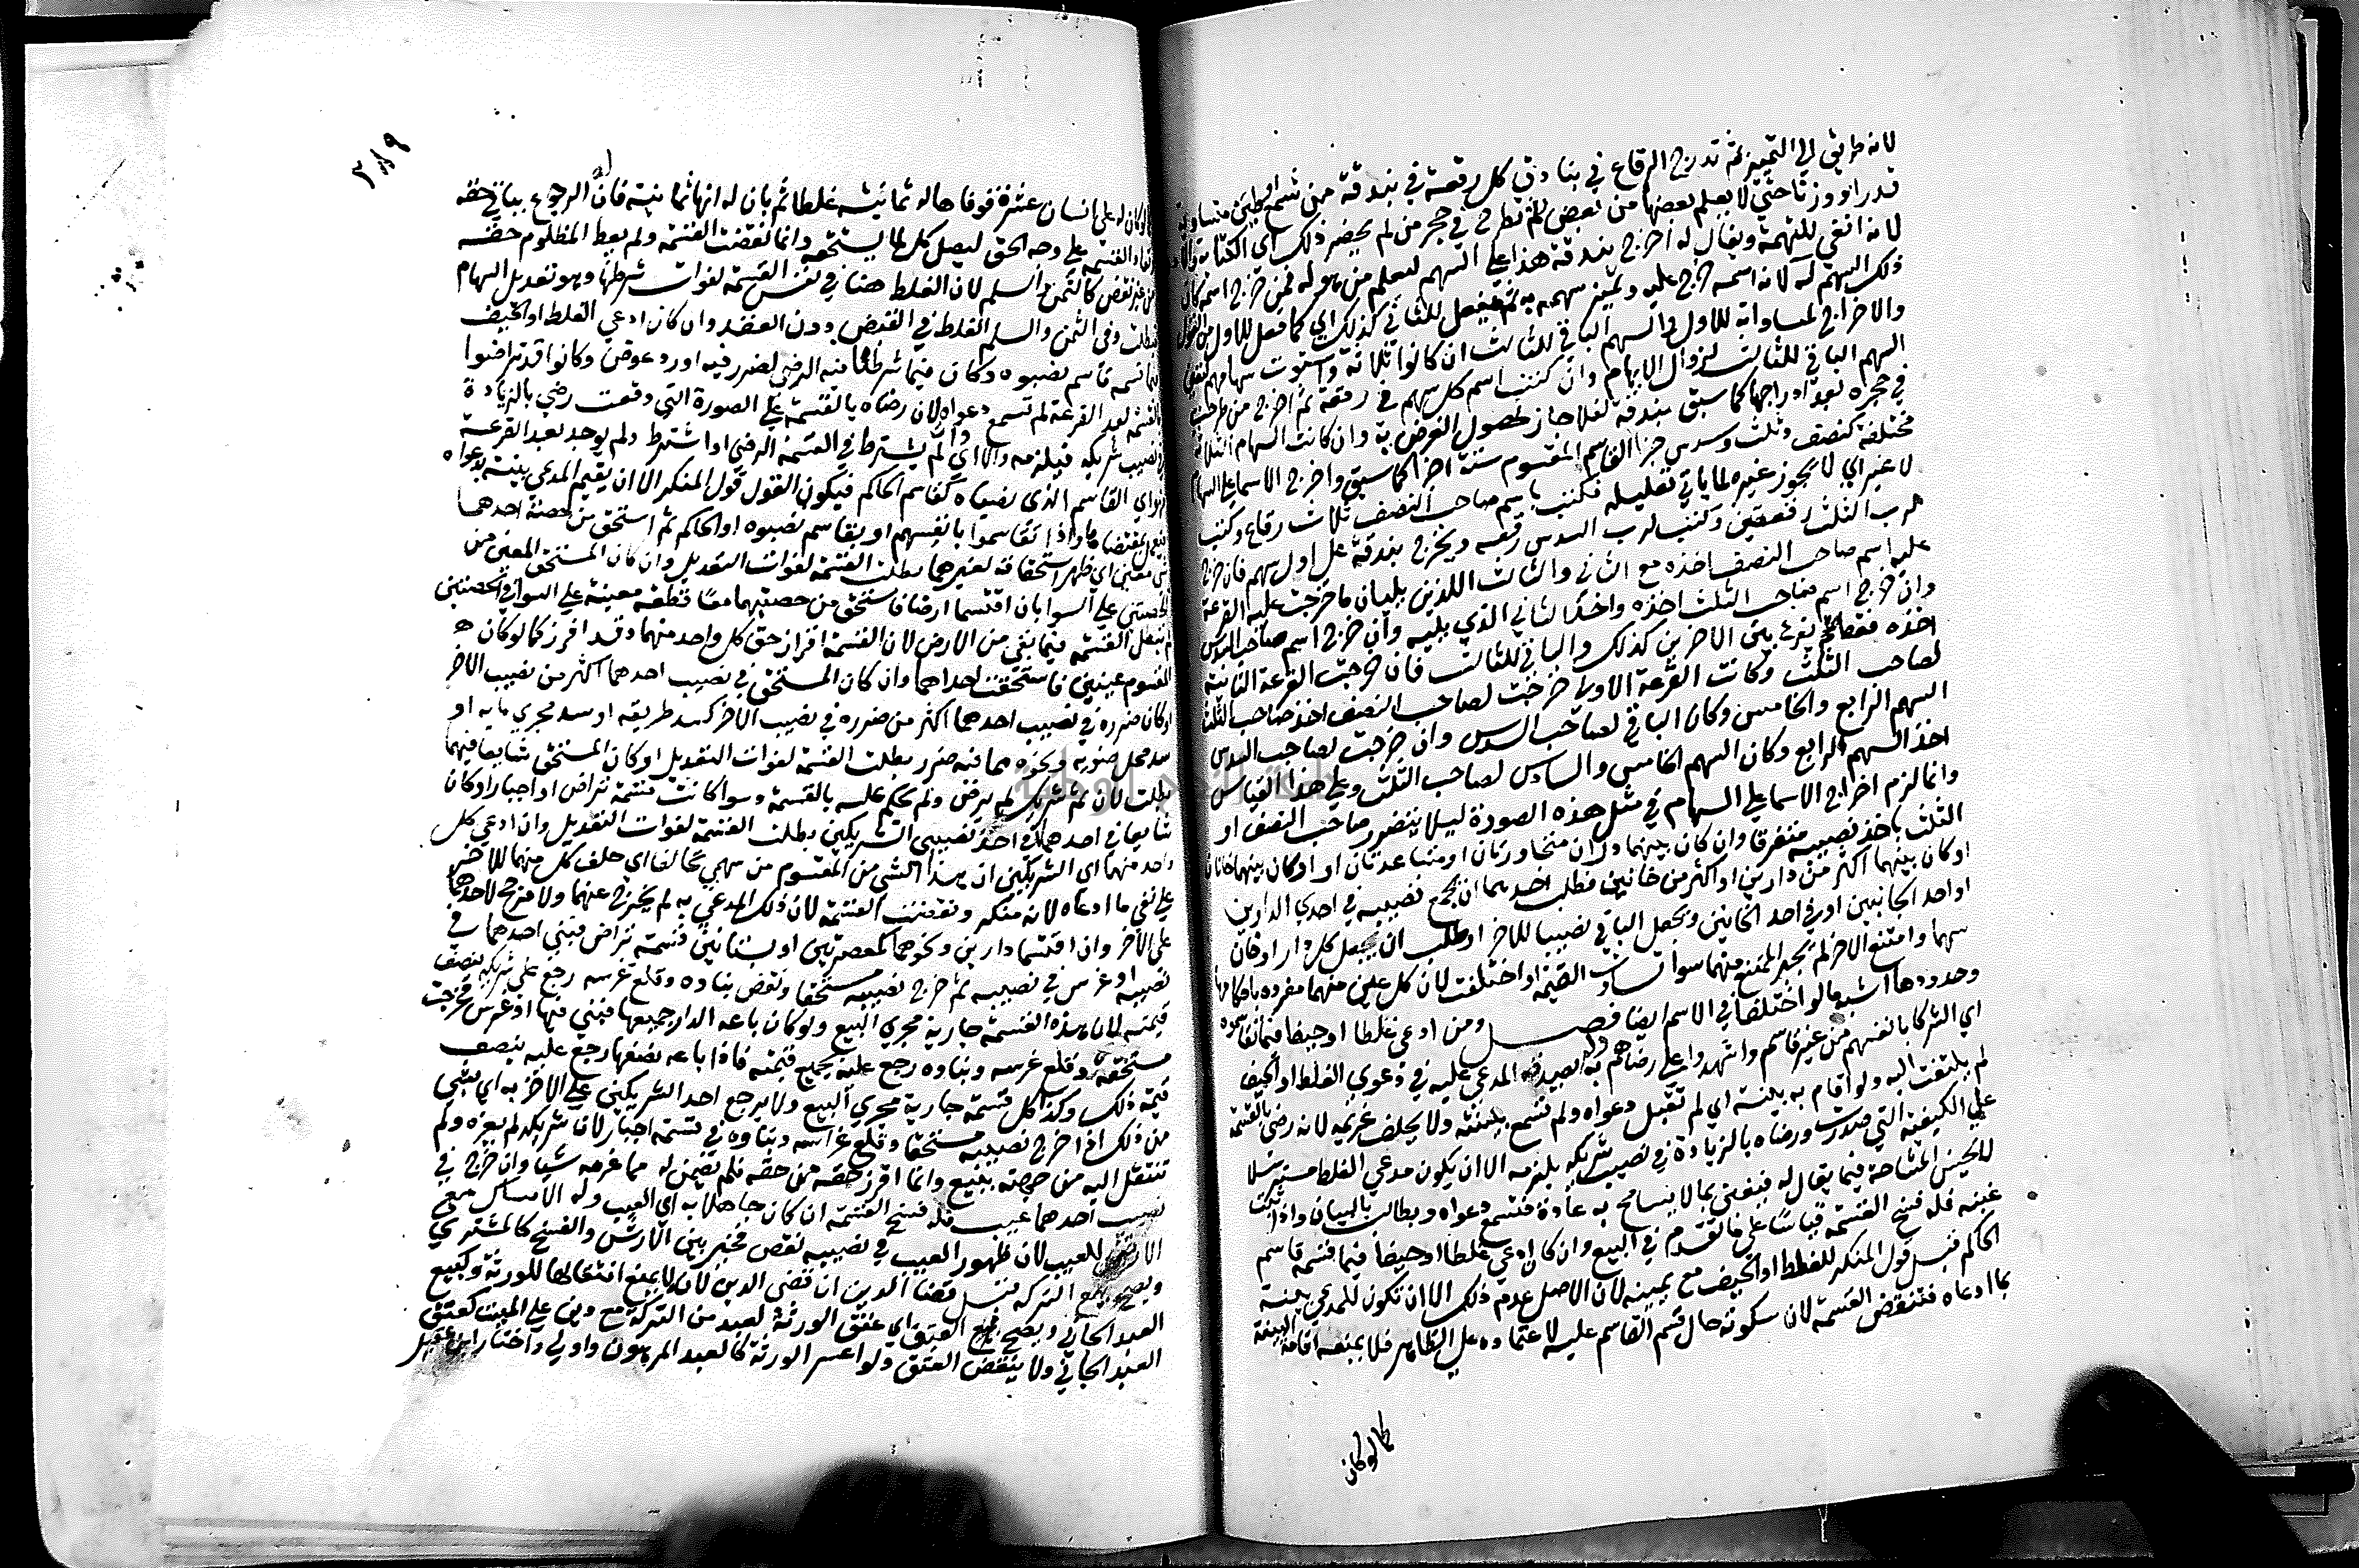 لانه طريق الي التمييز ثم تدرج الرقاع في بنادق كل رقعة في بندقة من شمع او طين متساوية
قدرا ووزنا حتي لا يعلم بعضها من بعض ثم تطرح في حجر من لم يحضر ذلك اي الكتابة
لانه انفي للتهمة ويقال له اخرج بندقة هذا علي السهم ليعلم من هو له فمن خرج اسمه كان
ذلك السهم له لانه اسمه خرج عليه وتميز سهمه به ثم يفعل للثاني كذلك اي كما فعل للاول
والاخراج لمساواته للاول والسهم الباقي للثالث ان كانوا ثلاثة واستوت سهامهم
السهم الباقي للثالث لزوال الابهام وان كتب اسم كل سهم في رقعة ثم اخرج من طرحت
في حجره بعد ادراجها كما سبق بندقة لفلان جاز لحصول الغرض به وان كانت السهام الثلاثة
مختلفة كنصف وثلث وسدس جزا القاسم المقسوم ستة اجزا كما سبق واخرج الاسما علي السهام
لا غير اي لا يجوز غيره لما ياتي تعليله فكتب باسم صاحب النصف ثلاث رقاع وكتب
لرب الثلث رقعتين وكتب لرب السدس رقعه ويخرج بندقة علي اول سهم فان خرج
عليه اسم صاحب النصف اخذه مع الثاني والثالث اللذين يليان ما خرجت عليه القرعة
وان خرج اسم صاحب الثلث اخذه واخذ الثاني الذي يليه وان خرج اسم صاحب السدس
اخذه فقط ثم يقرع بين الاخرين كذلك والباقي للثالث فان خرجت القرعة الثانية
لصاحب الثلث وكانت القرعة الاولي خرجت لصاحب النصف اخذ صاحب الثلث
السهم الرابع والخامس وكان الباقي لصاحب السدس وان خرجت لصاحب السدس
اخذ السهم الرابع وكان السهم الخامس والسادس لصاحب الثلث وعلي هذا القياس
وانما لزم اخراج الاسما علي السهام في مثل هذه الصورة ليلا يتضرر صاحب النصف او
الثلث باخذ نصيبه متفرقا وان كان بينهما داران متجاورتان او متباعدتان او كان بينهما خانان
او كان بينهما اكثر من دارين او اكثر من خانين فطلب احدهما ان يجمع نصيبه في احدي الدارين
او احد الجانبين او في احد الخانين ويجعل الباقي نصيبا للاخر او طلب ان يجعل كل دار او خان
سهما وامتنع الاخر لم يجبر الممتنع منهما سوا تساوت القيمة او اختلفت لان كل عين منهما مفردة باحكامها
وحدودها اشبه ما لو اختلفا في الاسم ايضا فصل ومن ادعي غلطا او حيفا فيما تقاسموه
اي الشركا بانفسهم من غير قاسم واشهدوا علي رضاهم به لم يصدق المدعي عليه في دعوي الغلط او الحيف
لم يلتفت اليه ولو اقام به بينة اي لم تقبل دعواه ولم تسمع بينته ولا يحلف غريمه لانه رضي بالقسمة
علي الكيفية التي صدرت ورضاه بالزيادة في نصيب شريكه يلزمه الا ان يكون مدعي الغلط مسترسلا
لا يحسن المشاحة فيما يقال له فيغبن بما لا يتسامح به عادة فتسمع دعواه ويطالب بالبيان واذا ثبت
غبنه فله فسخ القسمة قياسا علي ما تقدم في البيع وان كان ادعي غلطا او حيفا فيما قسمه قاسم
الحاكم قبل قول المنكر للغلط او الحيف مع يمينه لان الاصل عدم ذلك الا ان تكون للمدعي بينة
بما ادعاه فتنقض القسمة لان سكوته حال قسم القاسم عليه لاعتماده علي الظاهر فلا يمنعه اقامة البينة
كما لو كان
٣٨٩
كما لو كان له علي انسان عشرة فوفاها له ثمانية غلطا ثم بان له انها ثمانية فان له الرجوع بباقي حقه
القسمة علي وجه الحق ليصل كل لما يستحقه وانما نقضت القسمة ولم يعط المظلوم حقه
من غير نقض كالثمن والسلم لان الغلط هنا في نفس القسمة لفوات شرطها وهو تعديل السهام
فبطلت وفي الثمن والسلم الغلط في القبض دون العقد وان كان ادعي الغلط او الحيف
فيما قسمه قاسم نصبوه وكان فيما شرطنا فيه الرضي لضرر فيه او رد عوض وكانوا قد تراضوا
بالقسمة بعد القرعة لم تسمع دعواه لان رضاه بالقسمة علي الصورة التي وقعت رضي بالزيادة
في نصيب شريكه فيلزمه والا اي وان لم يشترط في القسمة الرضي او اشترط ولم يوجد بعد القرعة
فهو اي القاسم الذي نصباه كقاسم الحاكم فيكون القول قول المنكر الا ان يقيم المدعي بينة بدعواه
فيعمل بمقتضاها واذا تقاسموا بانفسهم او بقاسم نصبوه او الحاكم ثم استحق من حصة احدهما
شي معين اي ظهر استحقاقه لغيرهما بطلت القسمة لفوات التعديل وان كان المستحق المعين من
الحصتين علي السوا بان اقتسما ارضا فاستحق من حصتيهما معا قطعة معينة علي السوا في الحصتين
لم تبطل القسمة فيما بقي من الارض لان القسمة افراز حق كل واحد منهما وقد افرز كما لو كان
المقسوم عينين فاستحقت احداهما وان كان المستحق في نصيب احدهما اكثر من نصيب الاخر
او كان ضرره في نصيب احدهما اكثر من ضرره في نصيب الاخر كسد طريقه او سد مجري مايه او
سد محل ضويه ونحوه مما فيه ضرر بطلت القسمة لفوات التعديل او كان المستحق شايعا فيهما
بطلت لان ثم شريك لم يرض ولم يحكم عليه بالقسمة وسوا كانت قسمة تراض او اجبار او كان
شايعا في احدهما اي احد نصيبي الشريكين بطلت القسمة لفوات التعديل وان ادعي كل
واحد منهما اي الشريكين ان هذا الشي من المقسوم من سهمي تحالفا اي حلف كل منهما للاخر
علي نفي ما ادعاه لانه منكر ونقضت القسمة لان ذلك المدعي به لم يخرج عنهما ولا مرجح لاحدهما
علي الاخر وان اقتسما دارين ونحوهما كمعصرتين او بستانين قسمة تراض فبني احدهما في
نصيبه او غرس في نصيبه ثم خرج نصيبه مستحقا ونقض بناوه وقلع غرسه رجع علي شريكه بنصف
قيمته لان هذه القسمة جارية مجري البيع ولو كان باعه الدار جميعها فبني فيها او غرس فخرجت
مستحقة وقلع غرسه وبناوه رجع عليه بجميع قيمته فاذا باعه نصفها رجع عليه بنصف
قيمة ذلك وكذا كل قسمة جارية مجري البيع ولا يرجع احد الشريكين علي الاخر به اي بشي
من ذلك اذا خرج نصيبه مستحقا وقلع غراسه وبناوه في قسمة اجبار لان شريكه لم يغره ولم
تنتقل اليه من جهته ببيع وانما افرز حقه من حقه فلم يضمن له مما غرمه شيا وان خرج في
نصيب احدهما عيب فله فسخ القسمة ان كان جاهلا به اي العيب وله الامساك مع
الارش للعيب لان ظهور العيب في نصيبه نقص فخير بين الارش والفسخ كالمشتري
ويصح بيع التركة قبل قضا الدين ان قضي الدين لان لا يمنع انتقالها للورثة وكبيع
العبد الجاني ويصح العتق اي عتق الورثة لعبد من التركة مع دين علي الميت كعتق
العبد الجاني ولا ينقض العتق ولو اعسر الورثة كالعبد المرهون واولي واختار ابن عقيل